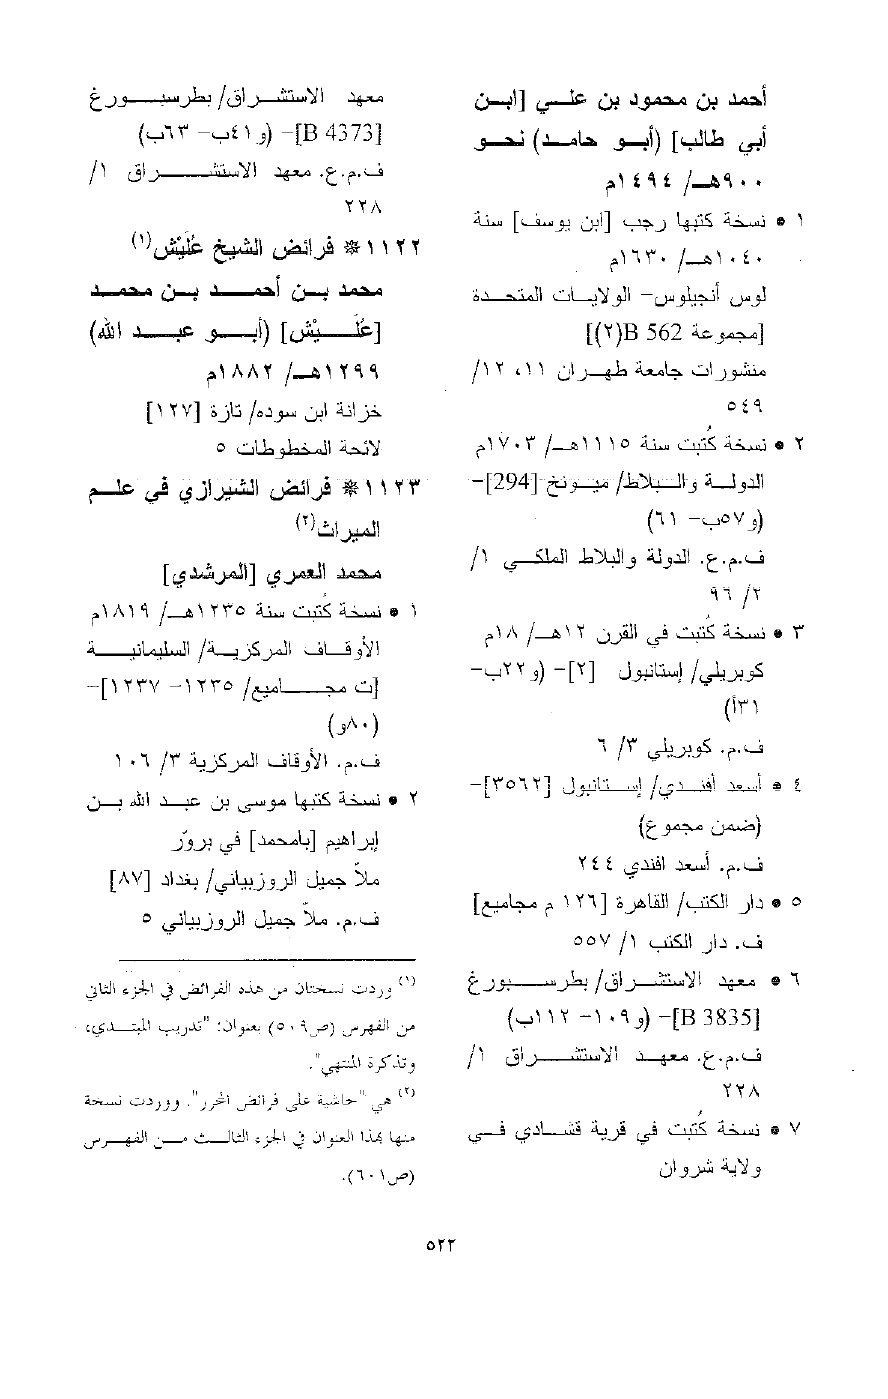 أحمد بن محمود بن علي [ابن
أبي طالب] (أبو حامد) نحو
٩٠٠هـ/ ١٤٩٤م
١ • نسخة كتبها رجب [ابن يوسف] سنة
١٠٤٠هـ/ ١٦٣٠م
لوس أنجيلوس- الولايات المتحدة
[مجموعة B 562(٢)]
منشورات جامعة طهران ١١، ١٢/
٥٤٩
٢ • نسخة كُتبت سنة ١١١٥هـ/ ١٧٠٣م
الدولة والبلاط/ ميونخ [294]-
(و٥٧ب- ٦١)
ف.م.ع. الدولة والبلاط الملكي ١/
٢/ ٩٦
٣ • نسخة كُتبت في القرن ١٢هـ/ ١٨م
كوبريلي/ إستانبول [٢]- (و٢٢ب-
٣١أ)
ف.م. كوبريلي ٣/ ٦
٤ • أسعد أفندي/ إستانبول [٣٥٦٢]-
(ضمن مجموع)
ف.م. أسعد افندي ٢٤٤
٥ • دار الكتب/ القاهرة [١٢٦ م مجاميع]
ف. دار الكتب ١/ ٥٥٧
٦ • معهد الاستشراق/ بطرسبورغ
[B 3835]- (و١٠٩- ١١٢ب)
ف.م.ع. معهد الاستشراق ١/
٢٢٨
٧ • نسخة كُتبت في قرية قشادي في
ولاية شروان
معهد الاستشراق/ بطرسبورغ
[B 4373]- (و٤١ب- ٦٣ب)
ف.م.ع. معهد الاستشراق ١/
٢٢٨
١١٢٢ * فرائض الشيخ عُلَيْش(١)
محمد بن أحمد بن محمد
[عُلَيْش] (أبو عبد الله)
١٢٩٩هـ/ ١٨٨٢م
خزانة ابن سوده/ تازة [١٢٧]
لائحة المخطوطات ٥
١١٢٣ * فرائض الشيرازي في علم
الميراث(٢)
محمد العمري [المرشدي]
١ • نسخة كُتبت سنة ١٢٣٥هـ/ ١٨١٩م
الأوقاف المركزية/ السليمانية
[ت مجاميع/ ١٢٣٥- ١٢٣٧]-
(٨٠و)
ف.م. الأوقاف المركزية ٣/ ١٠٦
٢ • نسخة كتبها موسى بن عبد الله بن
إبراهيم [بامحمد] في بروّر
ملاّ جميل الروزبياني/ بغداد [٨٧]
ف.م. ملاّ جميل الروزبياني ٥
(١) وردت نسختان من هذه الفرائض في الجزء الثاني
من الفهرس (ص٥٠٩) بعنوان: "تدريب المبتدي،
وتذكرة المنتهي".
(٢) هي "حاشية على فرائض المحرر". ووردت نسخة
منها بهذا العنوان في الجزء الثالث من الفهرس
(ص٦٠١).
٥٢٢